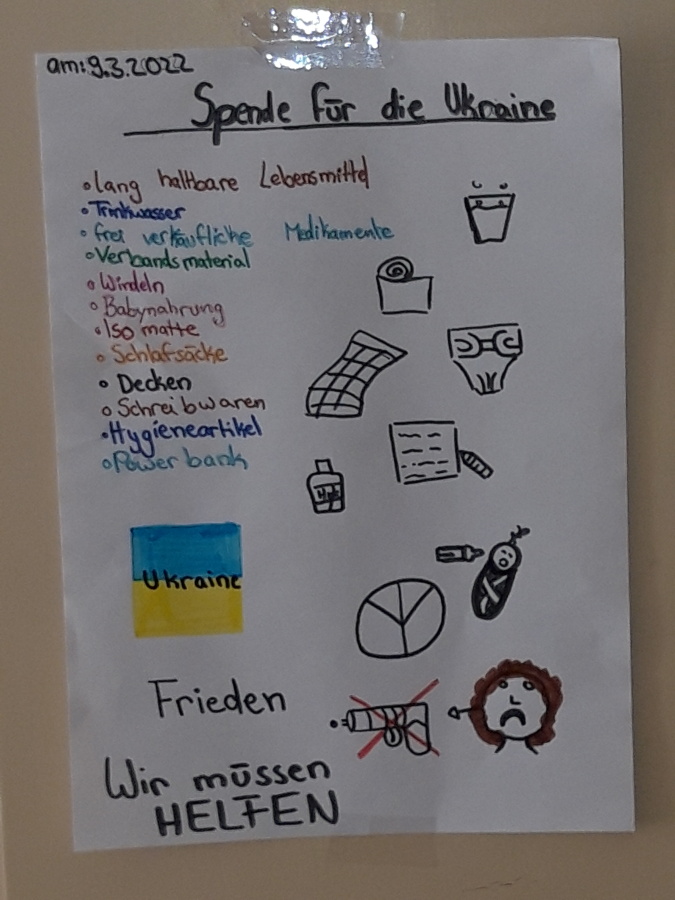 am: 9.3.2022
Spende für die Ukraine
lang haltbare Lebensmittel
Trinkwasser
frei verkäufliche Medikamente
Verbandsmaterial
Windeln
Babynahrung
Iso matte
Schlafsäcke
Decken
Schreibwaren
Hygieneartikel
Power bank
Ukraine
Frieden
Wir müssen
HELFEN